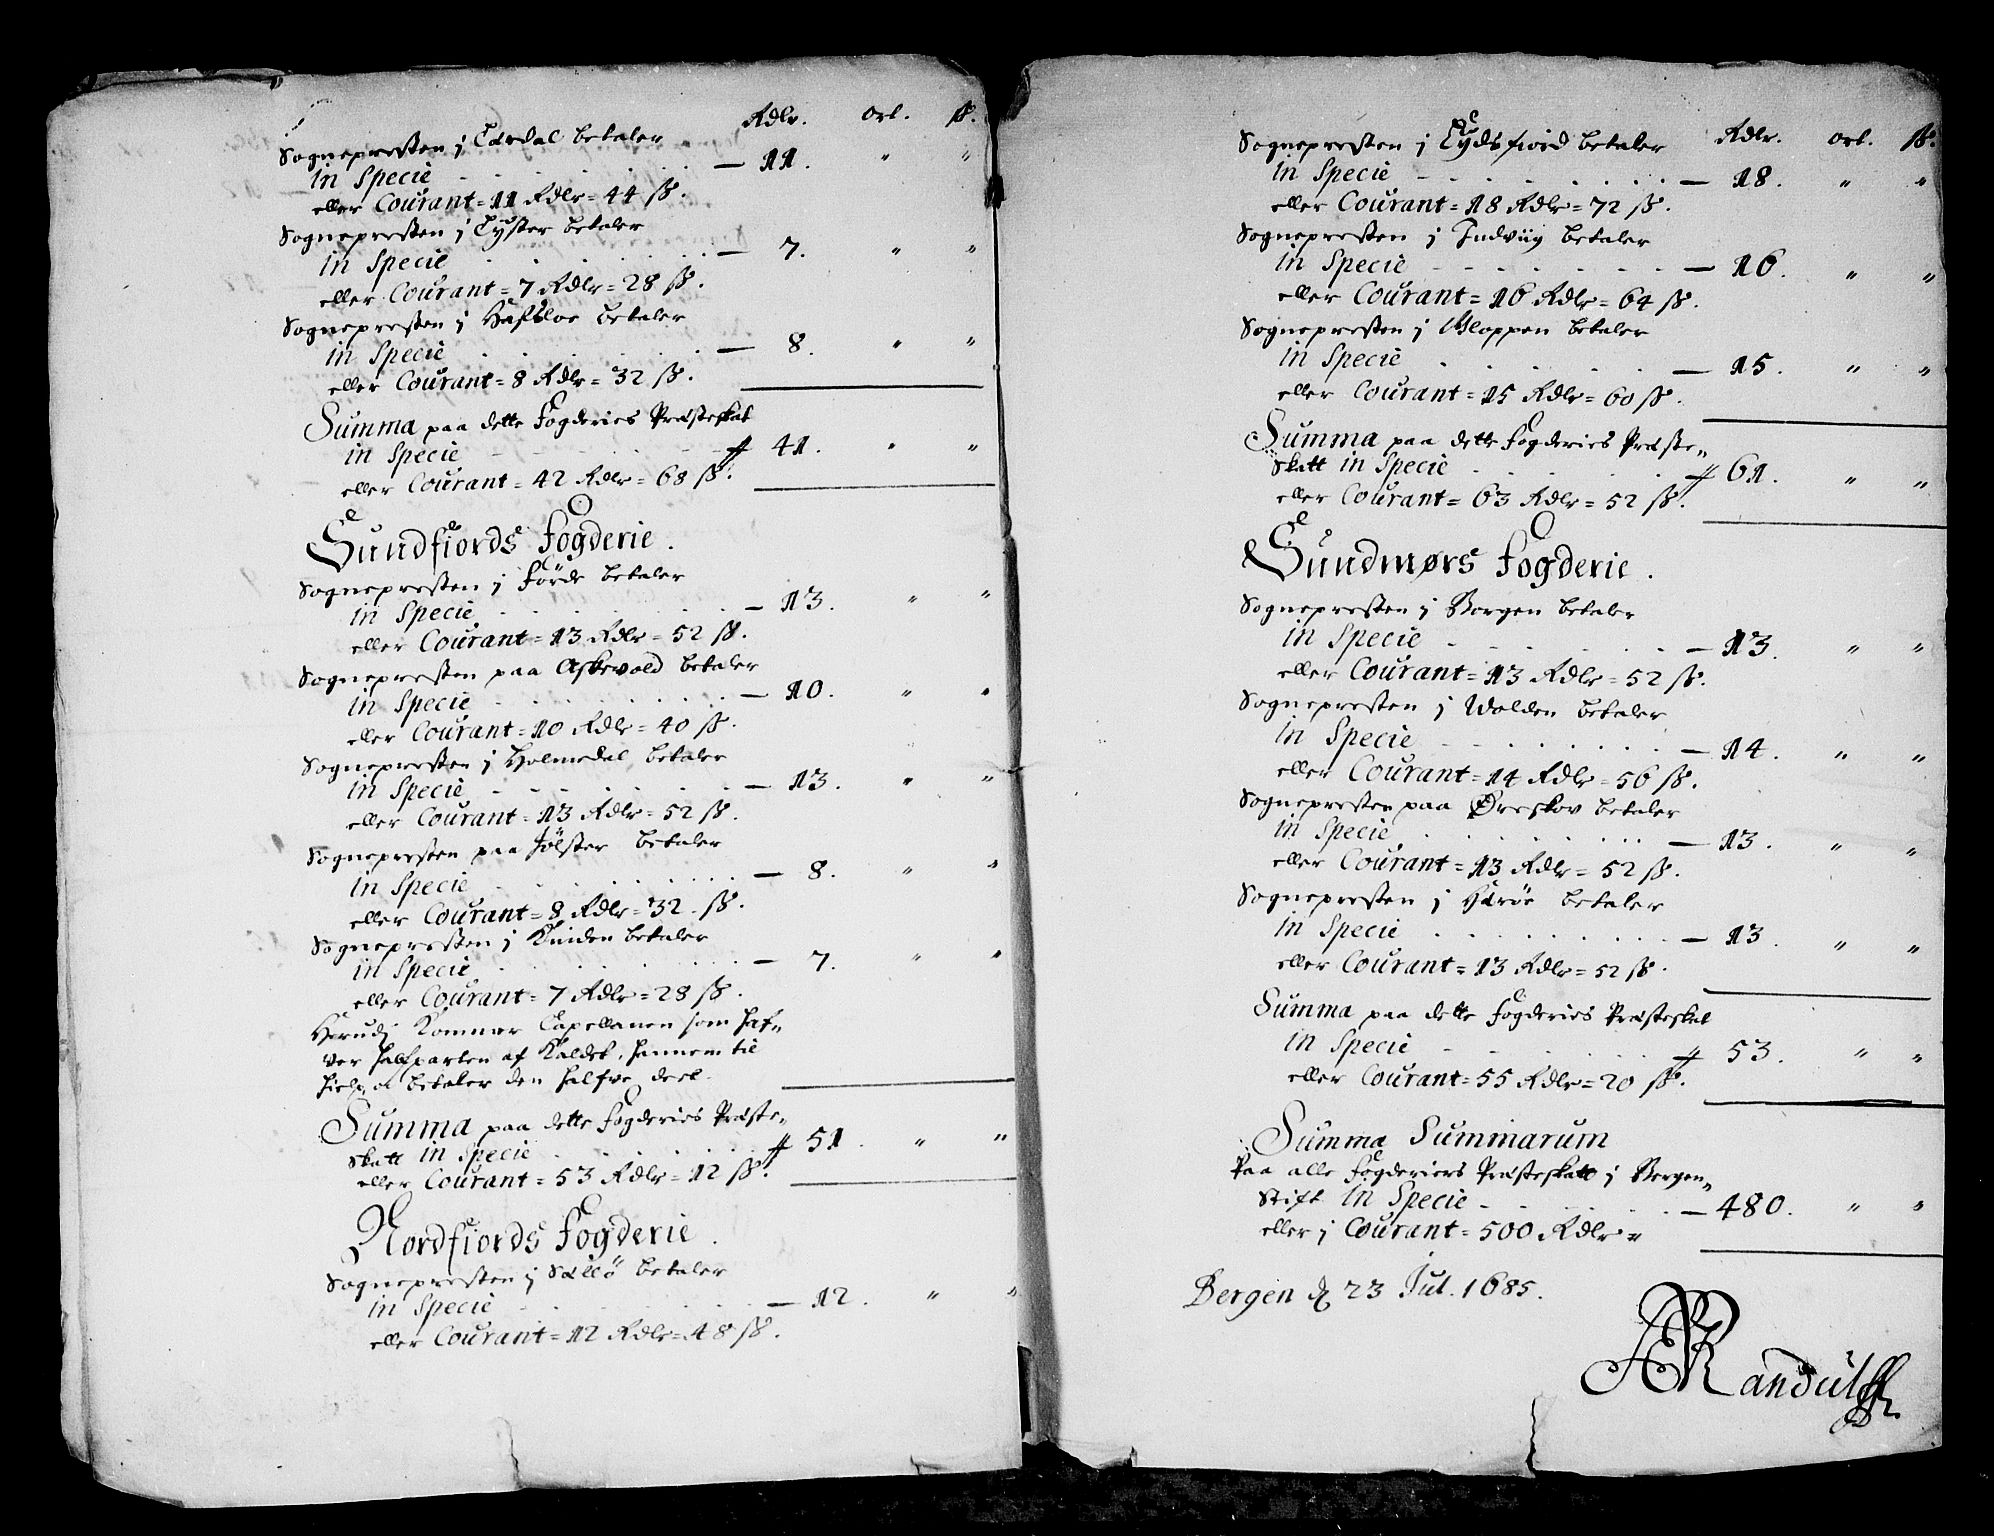 Rdlr. ort. ß.
Sognepresten j Lærdal betaler
in Specie — 11. " "
eller Courant = 11 Rdlr = 44 ß.
Sognepresten j Lyster betaler
in Specie — 7. " "
eller Courant = 7 Rdlr = 28 ß.
Sognepresten j Hafsloe betaler
in Specie — 8. " "
eller Courant = 8 Rdlr = 32 ß.
Summa paa dette Fogderies Præsteskat
in Specie 41. " "
eller Courant = 42 Rdlr = 68 ß.
Sundfiords Fogderie.
Sognepresten j Förde betaler
in Specie — 13. " "
eller Courant = 13 Rdlr = 52 ß.
Sognepresten paa Askevold betaler
in Specie — 10. " "
eller Courant = 10 Rdlr = 40 ß.
Sognepresten j Holmedal betaler
in Specie — 13. " "
eller Courant = 13 Rdlr = 52 ß.
Sognepresten paa Jölster betaler
in Specie — 8. " "
eller Courant = 8 Rdlr = 32. ß.
Sognepresten j Kinden betaler
in Specie — 7. " "
eller Courant = 7 Rdlr = 28 ß.
Herudj Kommer Capellanen som haf„
ver halfparten af Kaldet, hannem til
hielp, at betaler den halfve deel.
Summa paa dette Fogderies Præste„
skatt in Specie 51. " "
eller Courant = 53 Rdlr = 12 ß.
Nordfiords Fogderie.
Sognepresten j Sællö betaler
in Specie — 12. " "
eller Courant = 12 Rdlr = 48 ß.
Rdlr. ort. ß.
Sognepresten j Eydsfiord betaler
in Specie — 18. " "
eller Courant = 18 Rdlr = 72 ß.
Sognepresten j Indviig betaler
in Specie — 16. " "
eller Courant = 16 Rdlr = 64 ß.
Sognepresten j Gloppen betaler
in Specie — 15. " "
eller Courant = 15 Rdlr = 60 ß.
Summa paa dette Fogderies Præste„
skatt in Specie 61. " "
eller Courant = 63 Rdlr = 52 ß.
Sundmørs Fogderie.
Sognepresten j Borgen betaler
in Specie — 13. " "
eller Courant = 13 Rdlr = 52 ß.
Sognepresten j Wolden betaler
in Specie — 14. " "
eller Courant = 14 Rdlr = 56 ß.
Sognepresten paa Øreskov betaler
in Specie — 13. " "
eller Courant = 13 Rdlr = 52 ß.
Sognepresten j Harøe betaler
in Specie — 13. " "
eller Courant = 13 Rdlr = 52 ß.
Summa paa dette Fogderies Præsteskat
in Specie 53. " "
eller Courant = 55 Rdlr = 20 ß.
Summa Summarum
Paa alle Fogderiers Præsteskatt j Bergen„
Stift in Specie — 480. " "
eller j Courant = 500 Rdlr =
Bergen d 23 Jul. 1685.
Randulff